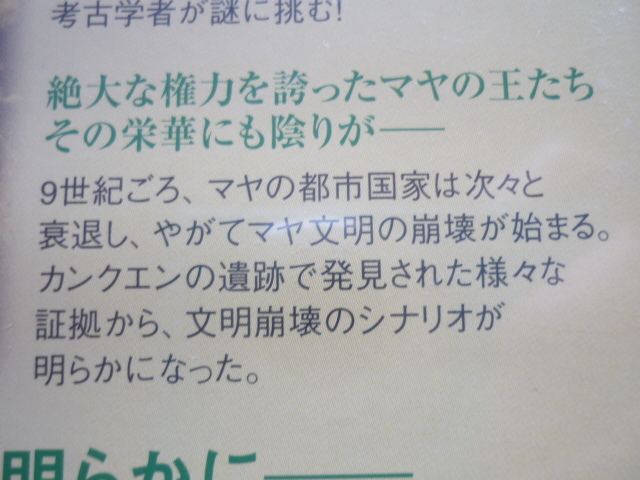 考古学者が謎に挑む!
絶大な権力を誇ったマヤの王たち
その栄華にも陰りが──
9世紀ごろ、マヤの都市国家は次々と
衰退し、やがてマヤ文明の崩壊が始まる。
カンクエンの遺跡で発見された様々な
証拠から、文明崩壊のシナリオが
明らかになった。
明らかに──